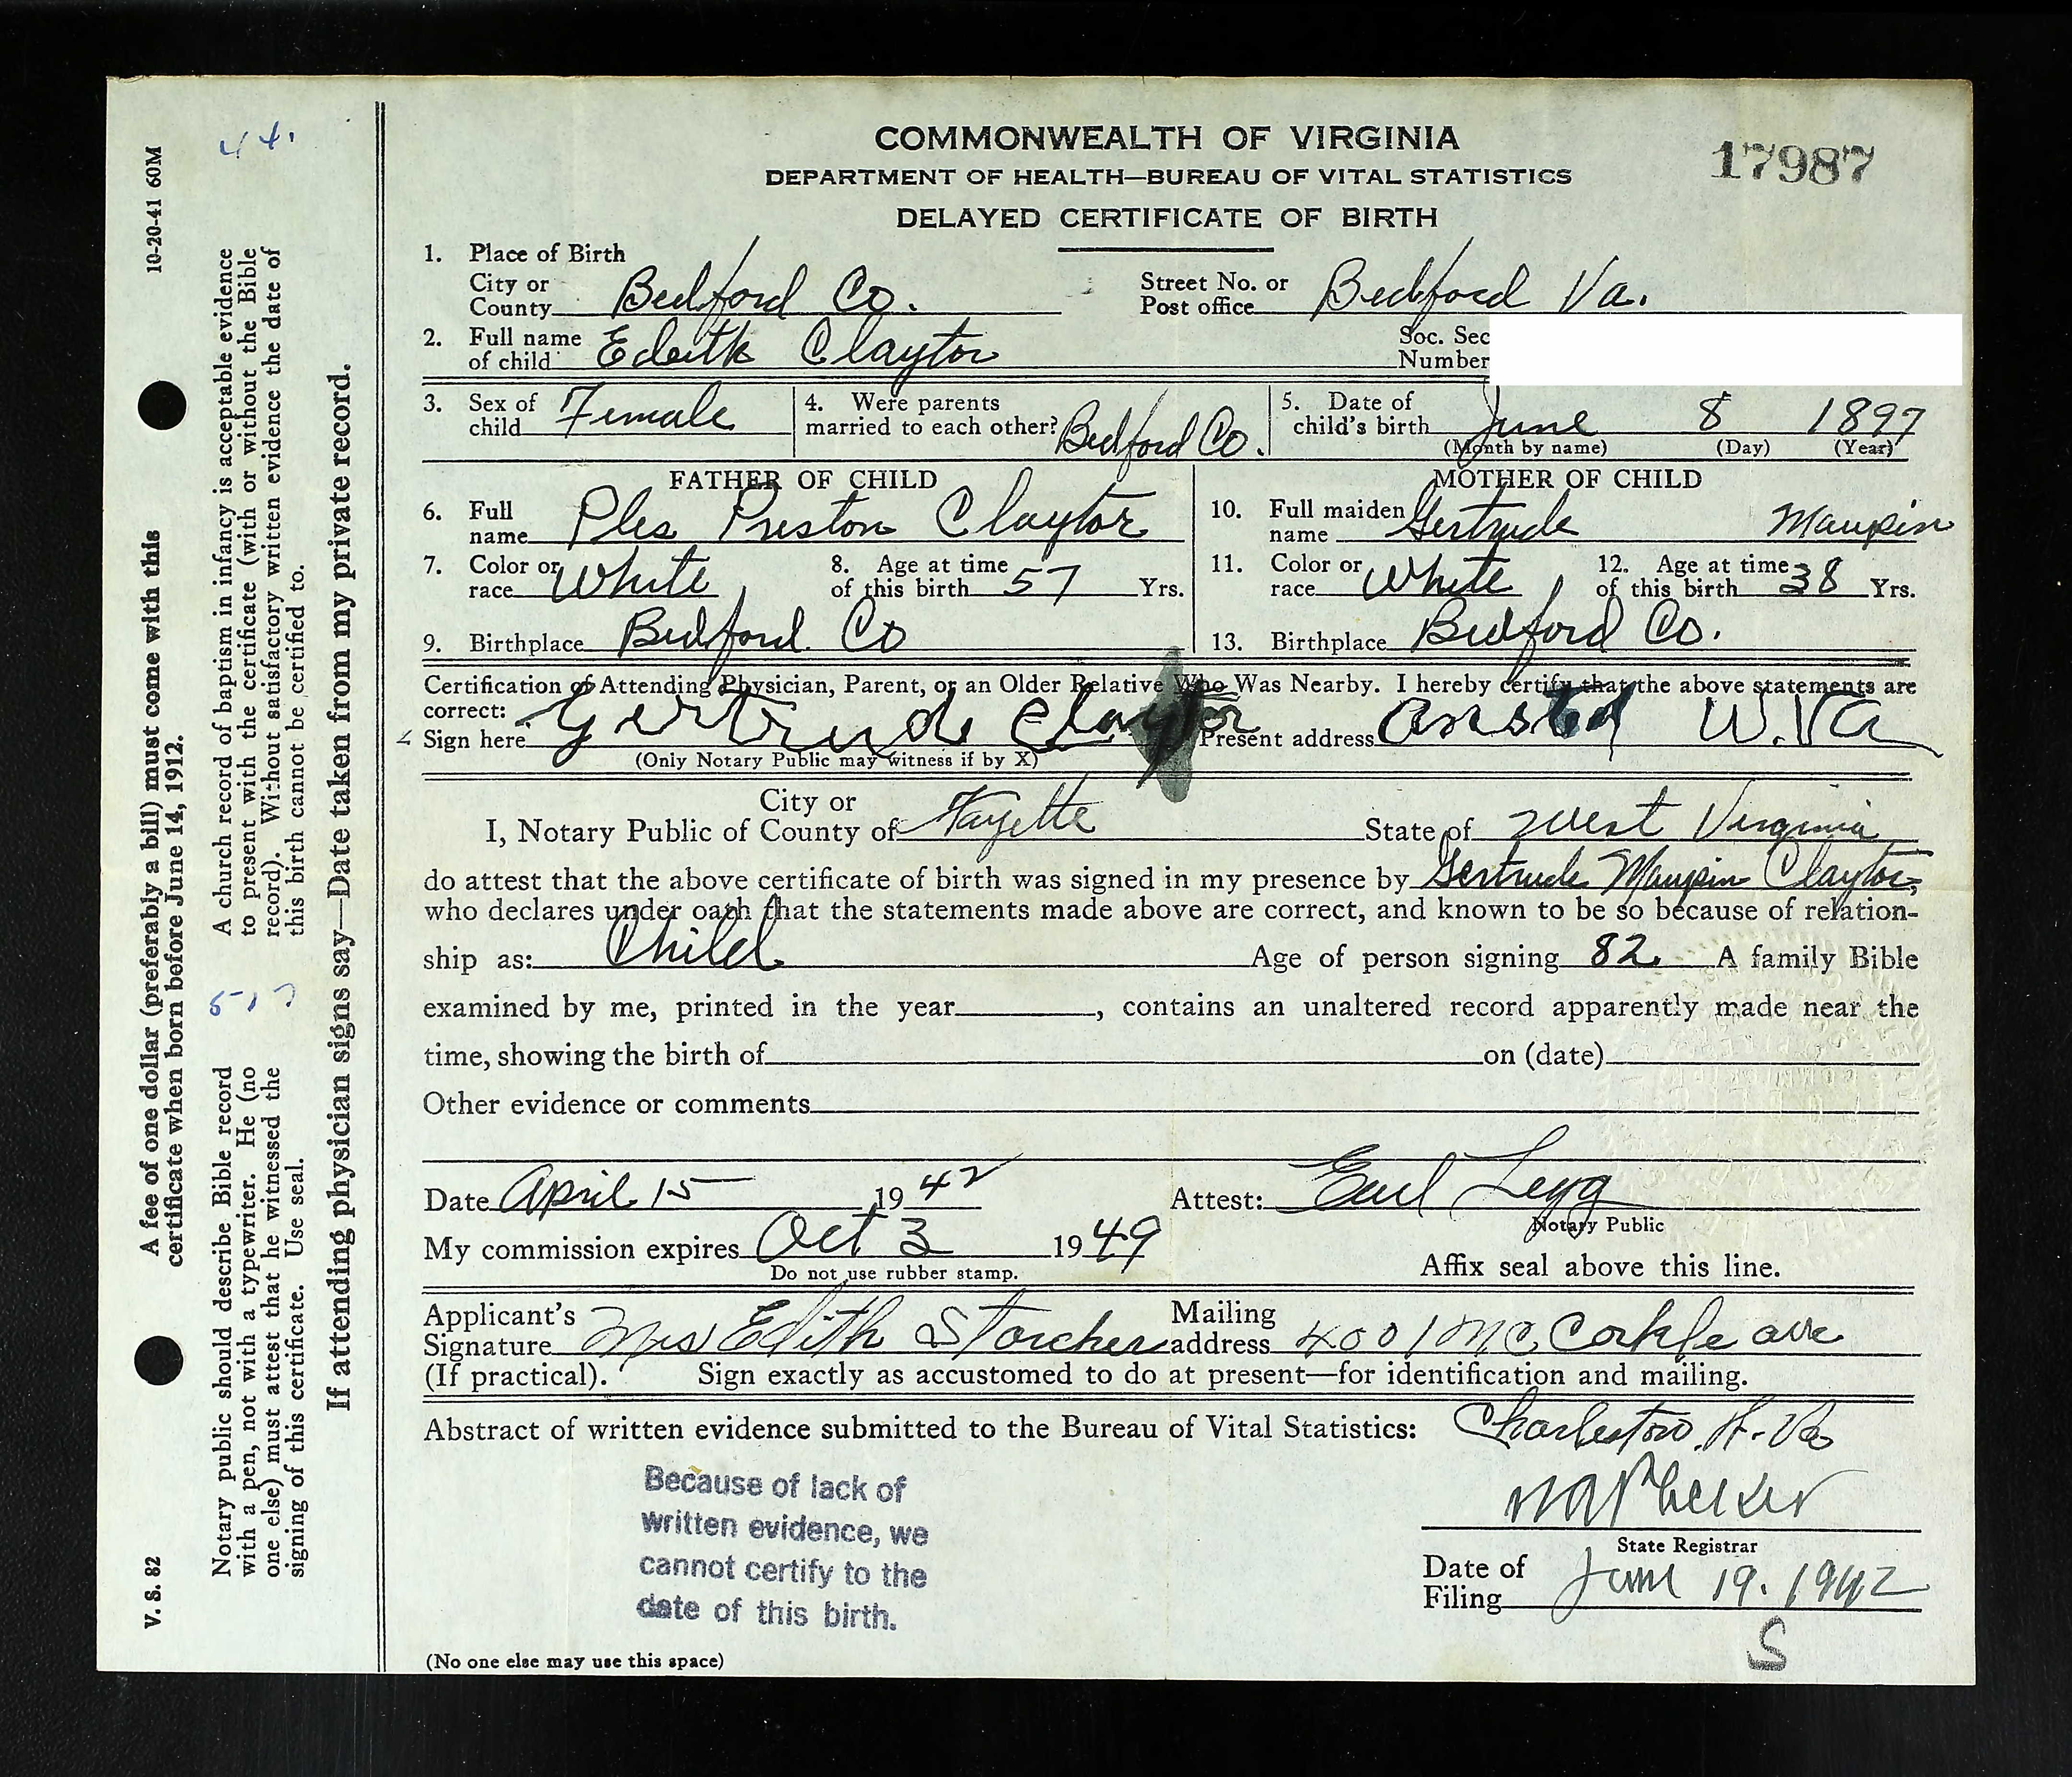 COMMONWEALTH OF VIRGINIA
DEPARTMENT OF HEALTH—BUREAU OF VITAL STATISTICS
DELAYED CERTIFICATE OF BIRTH
17987
1. Place of Birth
City or County Bedford Co. Street No. or Post office Bedford Va.
2. Full name of child Edith Claytor Soc. Sec Number
3. Sex of child Female 4. Were parents married to each other? Bedford Co. 5. Date of child's birth June 8 1897
(Month by name) (Day) (Year)
FATHER OF CHILD MOTHER OF CHILD
6. Full name Ples Preston Claytor 10. Full maiden name Gertrude Maupin
7. Color or race White 8. Age at time of this birth 57 Yrs. 11. Color or race White 12. Age at time of this birth 38 Yrs.
9. Birthplace Bedford Co 13. Birthplace Bedford Co.
Certification of Attending Physician, Parent, or an Older Relative Who Was Nearby. I hereby certify that the above statements are
correct:
Sign here Gertrude Claytor Present address Ansted W.Va
(Only Notary Public may witness if by X)
City or
I, Notary Public of County of Fayette State of West Virginia
do attest that the above certificate of birth was signed in my presence by Gertrude Maupin Claytor,
who declares under oath that the statements made above are correct, and known to be so because of relation-
ship as: Child Age of person signing 82 A family Bible
examined by me, printed in the year , contains an unaltered record apparently made near the
time, showing the birth of on (date)
Other evidence or comments
Date April 15 1942 Attest: Earl Legg
Notary Public
My commission expires Oct 3 1949
Do not use rubber stamp. Affix seal above this line.
Applicant's Signature Mrs Edith Storcher Mailing address 4001 McCorkle ave
(If practical). Sign exactly as accustomed to do at present—for identification and mailing.
Abstract of written evidence submitted to the Bureau of Vital Statistics: Charleston. W. Va
Because of lack of
written evidence, we
cannot certify to the
date of this birth.
State Registrar
Date of Filing June 19. 1942
S
(No one else may use this space)
10-20-41 60M
V. S. 82
A fee of one dollar (preferably a bill) must come with this
certificate when born before June 14, 1912.
44.
A church record of baptism in infancy is acceptable evidence
to present with the cerificate (with or without the Bible
record). Without satisfactory written evidence the date of
this birth cannot be certified to.
Notary public should describe Bible record
with a pen, not with a typewriter. He (no
one else) must attest that he witnessed the
signing of this certificate. Use seal.
If attending physician signs say—Date taken from my private record.